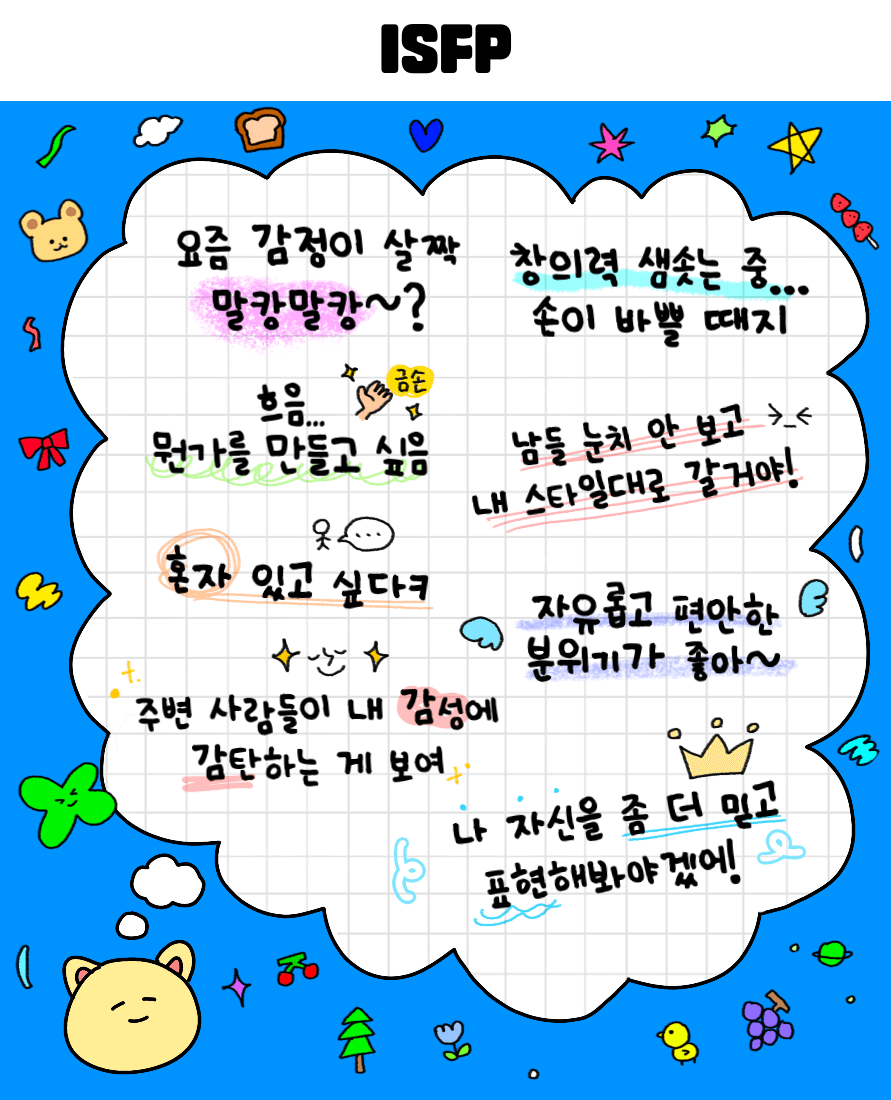 ISFP
요즘 감정이 살짝
말캉말캉~?
금손
흐음...
뭔가를 만들고 싶음
...
혼자 있고 싶다ㅋ
주변 사람들이 내 감성에
감탄하는 게 보여
창의력 샘솟는 중...
손이 바쁠 때지
남들 눈치 안 보고 >_<
내 스타일대로 갈거야!
자유롭고 편안한
분위기가 좋아~
나 자신을 좀 더 믿고
표현해봐야겠에!